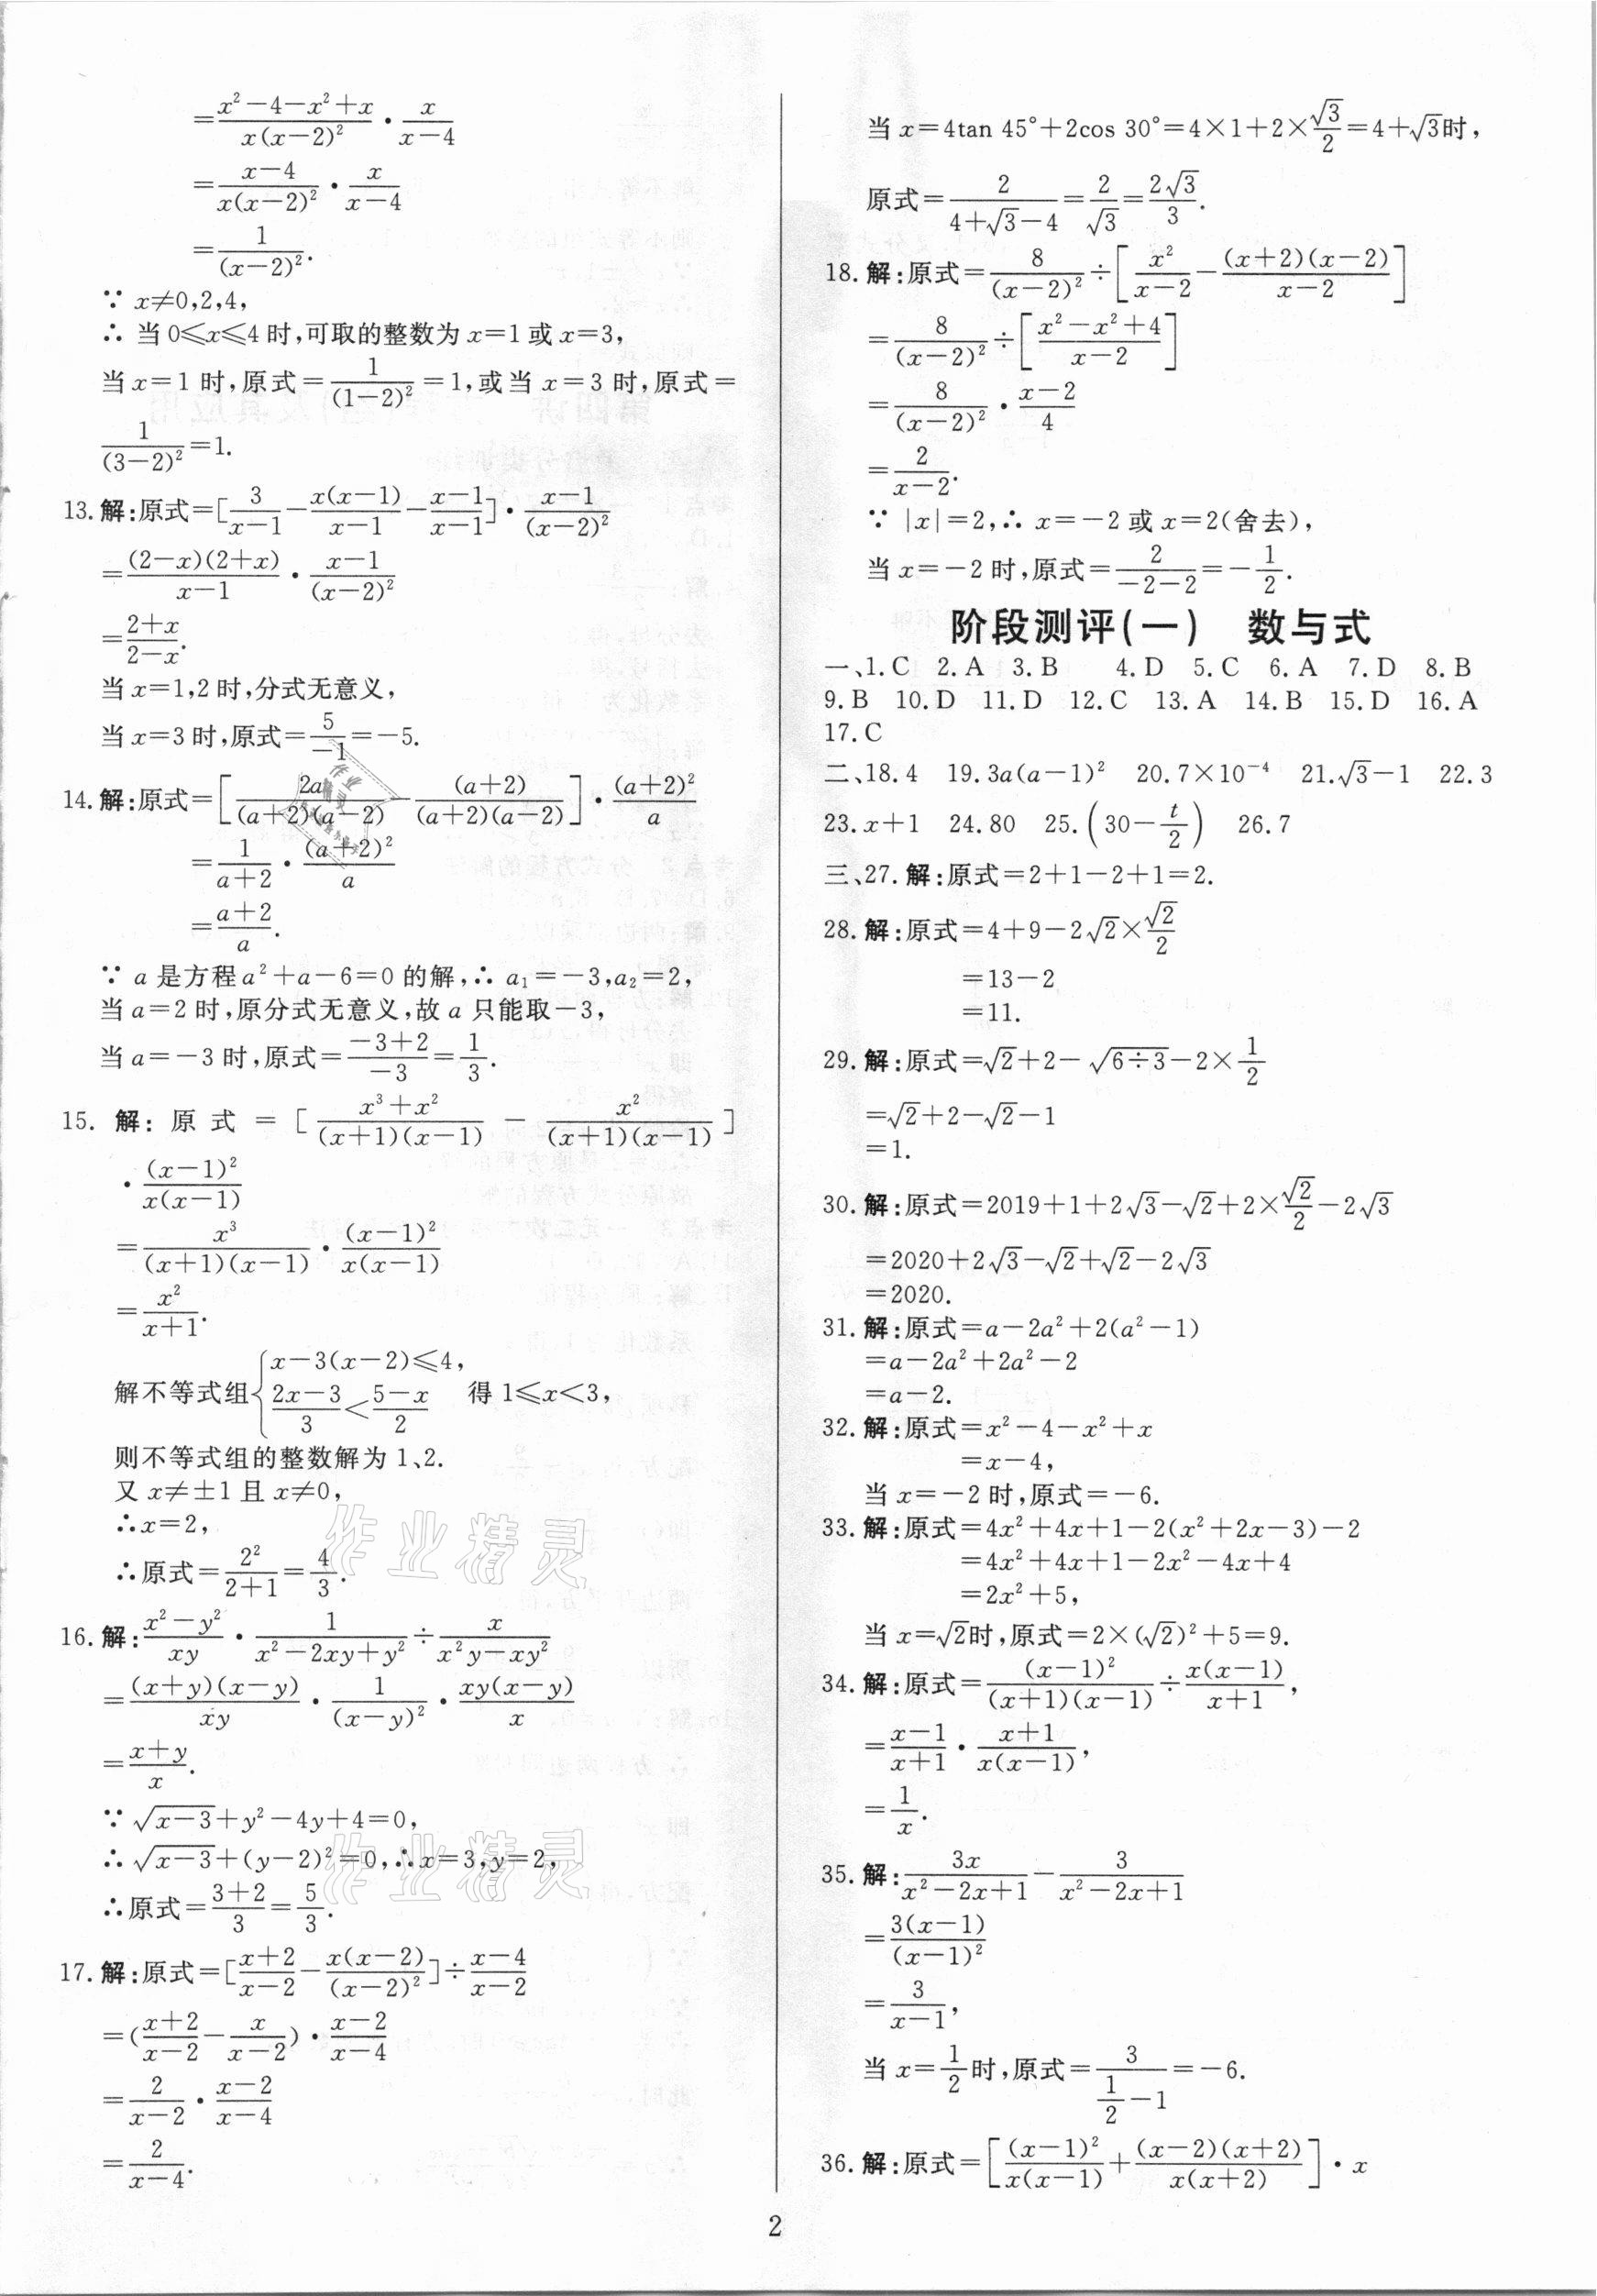 =\frac{x²-4-x²+x}{x(x-2)²}·\frac{x}{x-4}
=\frac{x-4}{x(x-2)²}·\frac{x}{x-4}
=\frac{1}{(x-2)²}.
∵ x≠0,2,4,
∴ 当0≤x≤4时,可取的整数为x=1或x=3,
当x=1时,原式=\frac{1}{(1-2)²}=1,或当x=3时,原式=
\frac{1}{(3-2)²}=1.
13.解:原式=[\frac{3}{x-1}-\frac{x(x-1)}{x-1}-\frac{x-1}{x-1}]·\frac{x-1}{(x-2)²}
=\frac{(2-x)(2+x)}{x-1}·\frac{x-1}{(x-2)²}
=\frac{2+x}{2-x}.
当x=1,2时,分式无意义,
当x=3时,原式=\frac{5}{-1}=-5.
14.解:原式=[\frac{2a}{(a+2)(a-2)}-\frac{(a+2)}{(a+2)(a-2)}]·\frac{(a+2)²}{a}
=\frac{1}{a+2}·\frac{(a+2)²}{a}
=\frac{a+2}{a}.
∵ a是方程a²+a-6=0的解,∴ a₁=-3,a₂=2,
当a=2时,原分式无意义,故a只能取-3,
当a=-3时,原式=\frac{-3+2}{-3}=\frac{1}{3}.
15. 解: 原式=[\frac{x³+x²}{(x+1)(x-1)}-\frac{x²}{(x+1)(x-1)}]
·\frac{(x-1)²}{x(x-1)}
=\frac{x³}{(x+1)(x-1)}·\frac{(x-1)²}{x(x-1)}
=\frac{x²}{x+1}.
解不等式组{x-3(x-2)≤4, \frac{2x-3}{3}<\frac{5-x}{2} 得1≤x<3,
则不等式组的整数解为1、2.
又x≠±1且x≠0,
∴x=2,
∴原式=\frac{2²}{2+1}=\frac{4}{3}.
16.解:\frac{x²-y²}{xy}·\frac{1}{x²-2xy+y²}÷\frac{x}{x²y-xy²}
=\frac{(x+y)(x-y)}{xy}·\frac{1}{(x-y)²}·\frac{xy(x-y)}{x}
=\frac{x+y}{x}.
∵ √(x-3)+y²-4y+4=0,
∴ √(x-3)+(y-2)²=0,∴x=3,y=2,
∴原式=\frac{3+2}{3}=\frac{5}{3}.
17.解:原式=[\frac{x+2}{x-2}-\frac{x(x-2)}{(x-2)²}]÷\frac{x-4}{x-2}
=(\frac{x+2}{x-2}-\frac{x}{x-2})·\frac{x-2}{x-4}
=\frac{2}{x-2}·\frac{x-2}{x-4}
=\frac{2}{x-4}.
当x=4tan 45°+2cos 30°=4×1+2×\frac{√3}{2}=4+√3时,
原式=\frac{2}{4+√3-4}=\frac{2}{√3}=\frac{2√3}{3}.
18.解:原式=\frac{8}{(x-2)²}÷[\frac{x²}{x-2}-\frac{(x+2)(x-2)}{x-2}]
=\frac{8}{(x-2)²}÷[\frac{x²-x²+4}{x-2}]
=\frac{8}{(x-2)²}·\frac{x-2}{4}
=\frac{2}{x-2}.
∵ |x|=2,∴ x=-2或x=2(舍去),
当x=-2时,原式=\frac{2}{-2-2}=-\frac{1}{2}.
阶段测评(一) 数与式
一、1.C 2.A 3.B 4.D 5.C 6.A 7.D 8.B
9.B 10.D 11.D 12.C 13.A 14.B 15.D 16.A
17.C
二、18.4 19.3a(a-1)² 20.7×10⁻⁴ 21.√3-1 22.3
23.x+1 24.80 25.(30-\frac{t}{2}) 26.7
三、27.解:原式=2+1-2+1=2.
28.解:原式=4+9-2√2×\frac{√2}{2}
=13-2
=11.
29.解:原式=√2+2-√(6÷3)-2×\frac{1}{2}
=√2+2-√2-1
=1.
30.解:原式=2019+1+2√3-√2+2×\frac{√2}{2}-2√3
=2020+2√3-√2+√2-2√3
=2020.
31.解:原式=a-2a²+2(a²-1)
=a-2a²+2a²-2
=a-2.
32.解:原式=x²-4-x²+x
=x-4,
当x=-2时,原式=-6.
33.解:原式=4x²+4x+1-2(x²+2x-3)-2
=4x²+4x+1-2x²-4x+4
=2x²+5,
当x=√2时,原式=2×(√2)²+5=9.
34.解:原式=\frac{(x-1)²}{(x+1)(x-1)}÷\frac{x(x-1)}{x+1},
=\frac{x-1}{x+1}·\frac{x+1}{x(x-1)},
=\frac{1}{x}.
35.解:\frac{3x}{x²-2x+1}-\frac{3}{x²-2x+1}
=\frac{3(x-1)}{(x-1)²}
=\frac{3}{x-1},
当x=\frac{1}{2}时,原式=\frac{3}{\frac{1}{2}-1}=-6.
36.解:原式=[\frac{(x-1)²}{x(x-1)}+\frac{(x-2)(x+2)}{x(x+2)}]·x
2
作业精灵
作业精灵